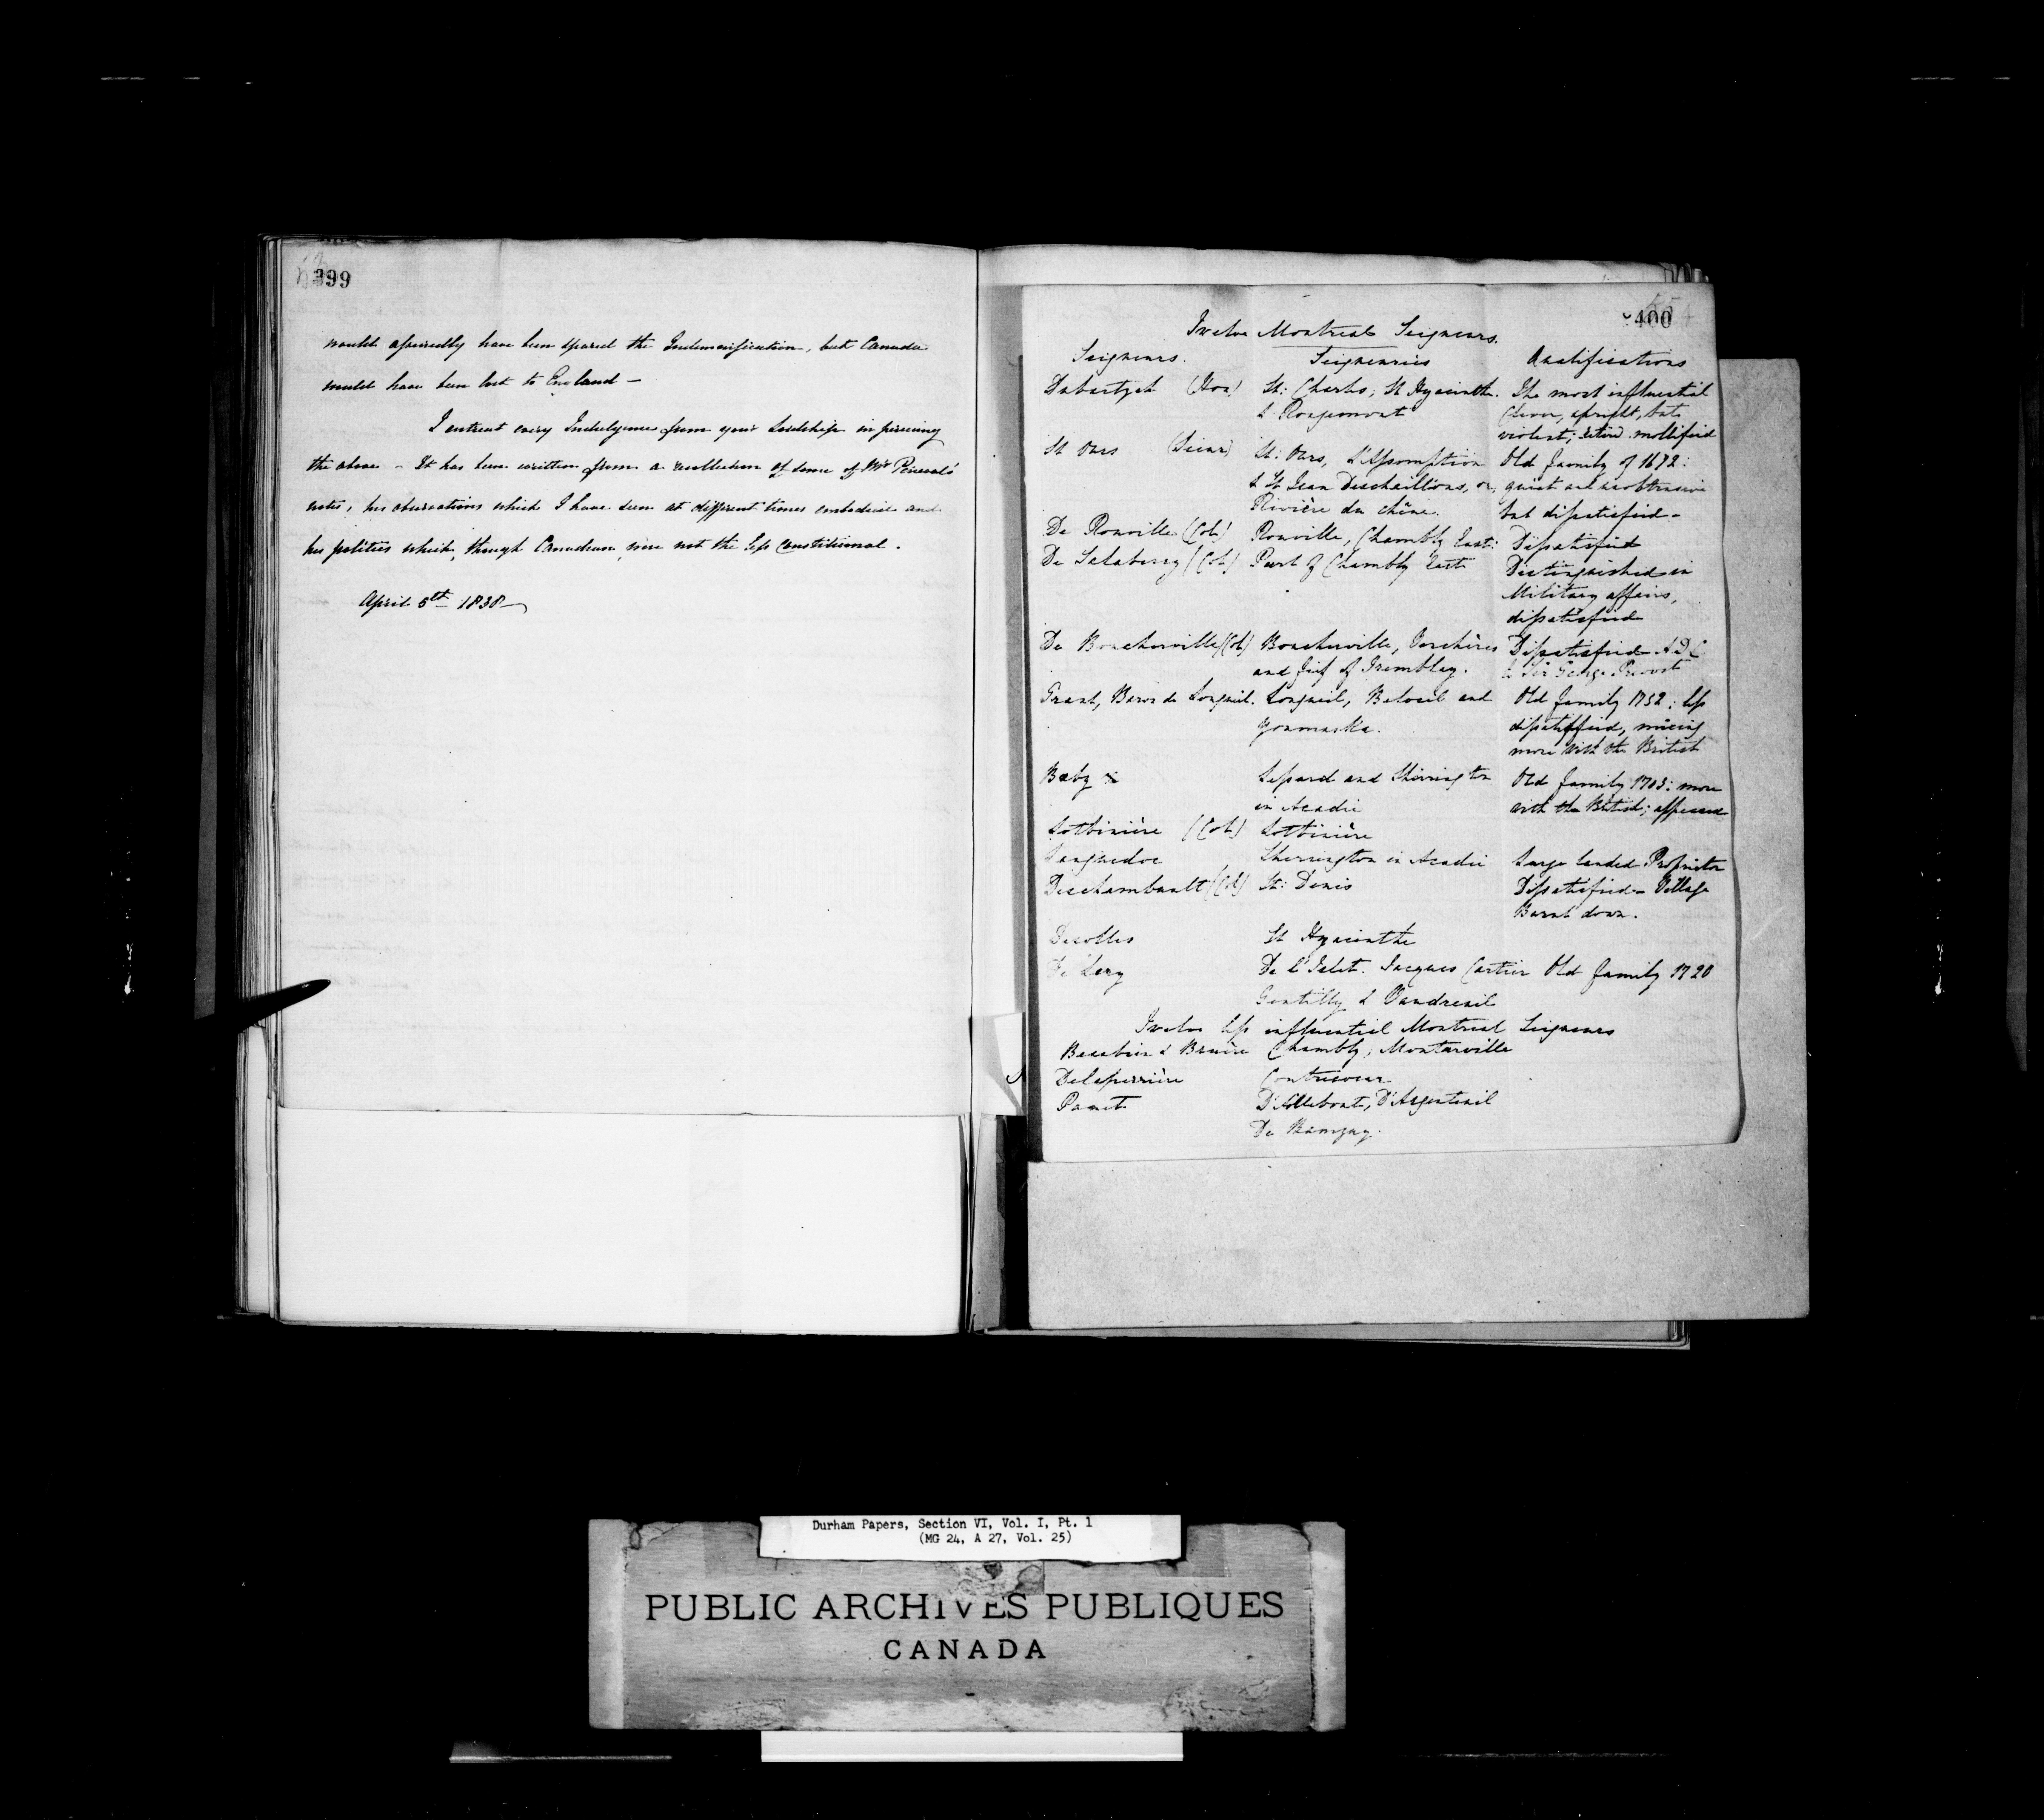 399
would assuredly have been spared the Indemnification, but Canada
would have been lost to England —
I entreat every Indulgence from your Lordship in perusing
the above - It has been written from a recollection of some of Mr Perceval's
notes, his observations which I have seen at different times embodied and
his politics which, though Canadian, were not the less Constitutional.
April 5th 1838
400
Twelve Montreal Seigneurs.
Seigneurs. Seigneuries Qualifications
Debartzch (Hon) St: Charles, St Hyacinthe. The most influential
& Rougemont Clever, upright, but
violent; mollified
St Ours St: Ours, L'Assomption Old family of 1672:
& St Jean Deschaillons, or, quiet and unobtrusive
Rivière du chêne. but dissatisfied -
De Rouville (Col) Rouville, Chambly East: Dissatisfied
De Salaberry (Col) Part of Chambly East Distinguished in
Military affairs,
dissatisfied
De Boucherville (Col) Boucherville, Verchères Dissatisfied A.D.C
and fief of Tremblay. to Sir George Prevost
Grant, Baron de Longueil. Longueil, Beloeil and Old family 1752; less
Yamaska. dissatisfied, mixing
more with the British
Baby Lessard and Sherrington Old family 1703: more
in Acadie with the British;
Lotbinière (Col) Lotbinière
Languedoc Sherrington in Acadie Large landed Proprietor
Deschambault (Col) St: Denis Dissatisfied - Village
Burnt down.
Desolles St Hyacinthe
De Lery De l'Islet. Jacques Cartier Old family 1720
Gentilly & Vaudreuil
Twelve less influential Montreal Seigneurs
Beaubien & Bruère Chambly, Montarville
Delaperrière Contrecoeur
Panet D'Aillebout, D'Argenteuil
De Ramzay.
Durham Papers, Section VI, Vol. I, Pt. 1
(MG 24, A 27, Vol. 25)
PUBLIC ARCHIVES PUBLIQUES
CANADA